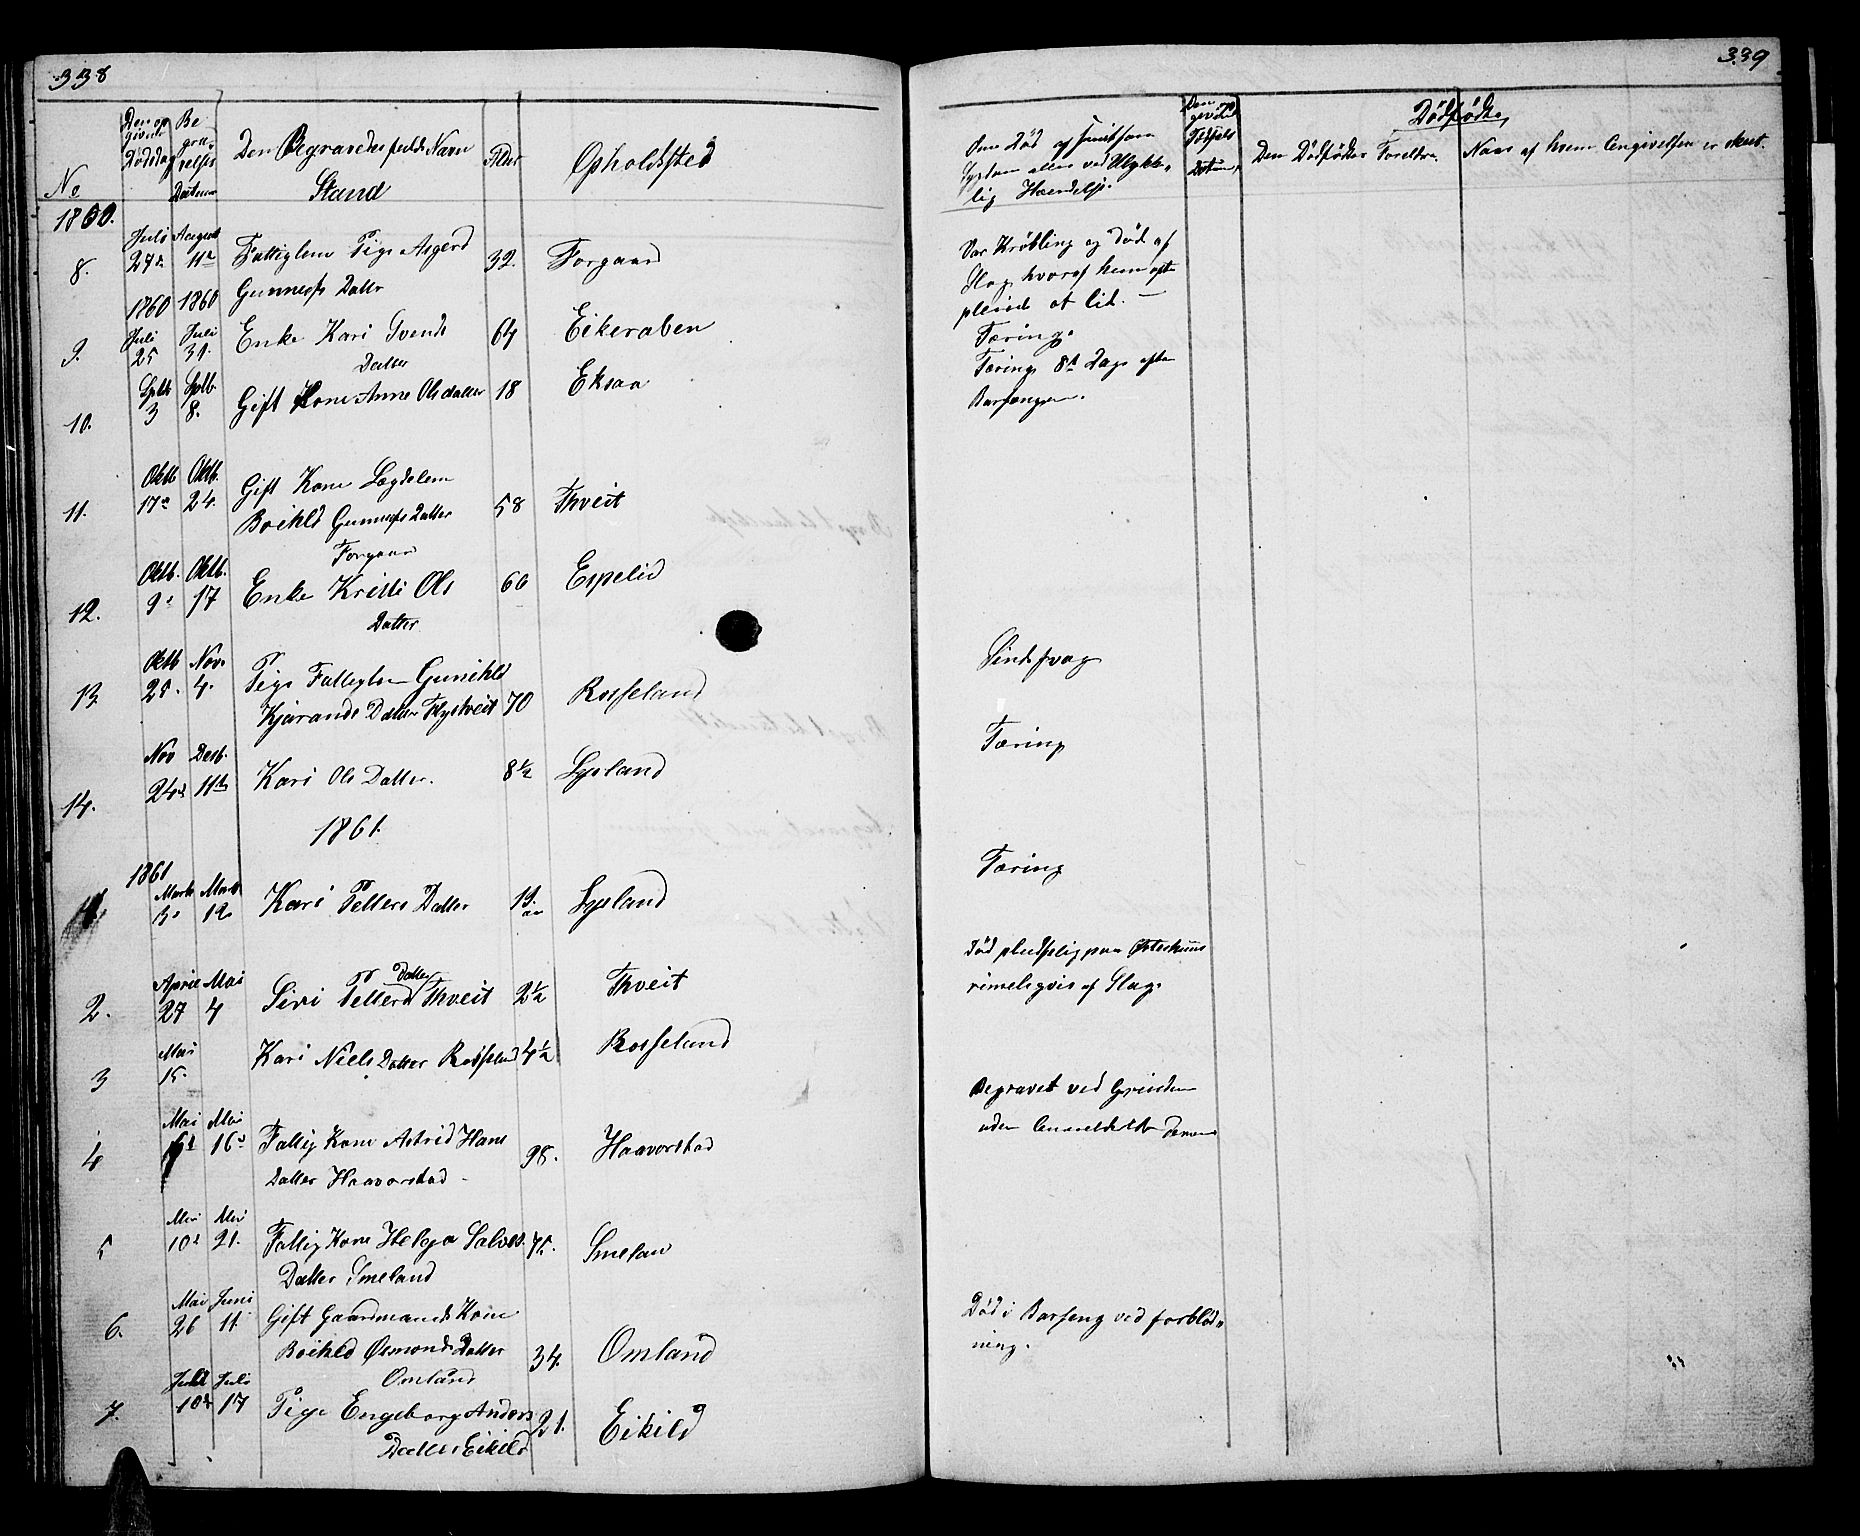 338
No
Den op
givende
Dødsdag
Be
gra-
velses
Datum
Den Begravedes fulde Navn
Stand
Alder
Opholdsted
1860.
8.
Juli
27de
August
11te
Fattiglem Pige Asgerd
Gunnufs Datter
32.
Forgaard
1860 1860
9.
Juli
25
Juli
31.
Enke Kari Svends
Datter
64
Eikeraben
10.
Sptb
3
Sptb.
8.
Gift Kone Anne Olsdatter
18
Eksaa
11.
Oktb
17de
Oktb.
24.
Gift Kone Lægdslem
Boihld Gunnufs Datter
Forgaard
58
Thveit
12.
Oktb.
9de
Oktb.
17
Enke Kristi Ols
Datter
66
Espelid
13.
Oktb
25.
Nov.
4.
Pige Fattiglem Gunihld
Kjærands Datter Flystveit
70
Rosseland
14.
Nov
24de
Desb.
11te
Kari Ols Datter.
8½
Lysland
1861.
1861
1.
Marts
Marts
12.
Kari Petters Datter
Lysland
2.
April
27
Mai
4
Siri Petters Datter Thveit
2½
Thveit
3
Mai
15.
Kari Niels Datter Rosseland
4½
Rosseland
4
Mai
6te
Mai
16de
Fattig Kone Astrid Hans
Datter Haaverstad
98.
Haaverstad
5
Mai
10de
Mai
21.
Fattig Kone Helga Salves
Datter Smeland
75.
Smelan
6.
Mai
26
Juni
11.
Gift Gaardmands Kone
Boihld Osmonds Datter
Omland
34.
Omland
7.
10de
Juli
17
Pige Engeborg Anders
Datter Eikild
21.
Eikild
339
Om Død af
eller ved Ulykke-
lig Hændelse.
Den
Fødsels
Datum
Dødfødte
Den Dødfødtes Foreldre.
Naar af hvem Angivelsen er skeet.
Var Krøbling og Død af
Slag hvoraf hun ofte
pleied at lid. —
Tæring.
Tæring 8te Dage efter
Barsengen.
Sindssvag
Tæring
Tæring
Død pludselig paa
rimeligvis af Slag.
Begravet ved Grinden
uden Anmeldelse
Død i Barseng ved forblød-
ning.